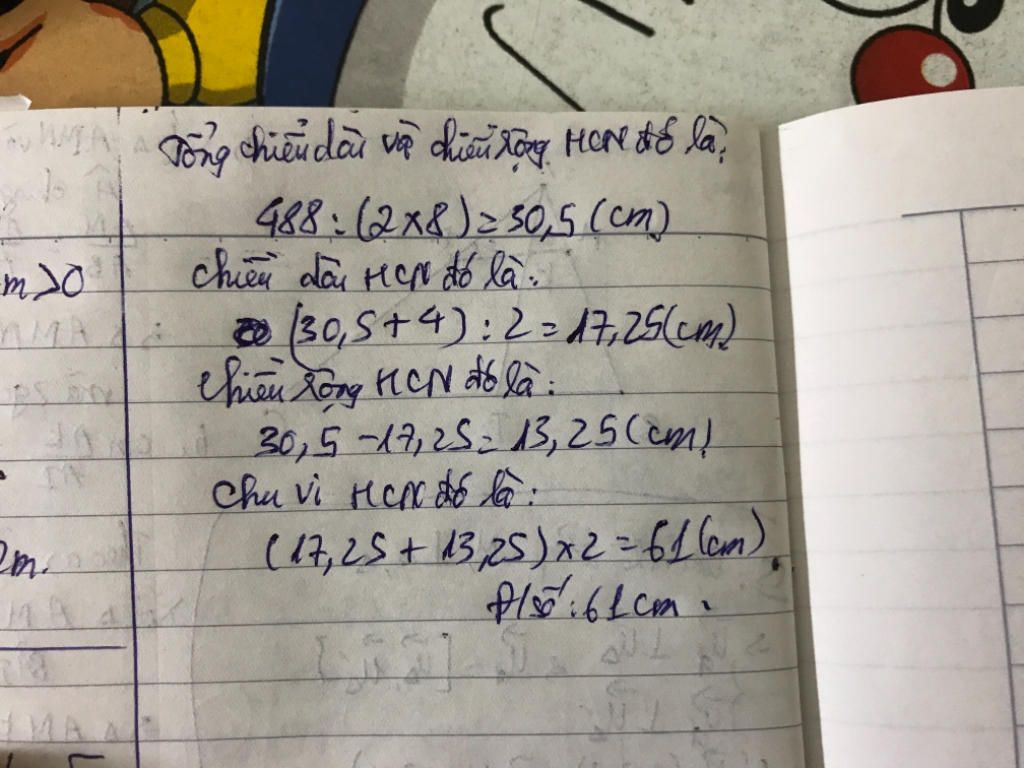 Tổng chiều dài và chiều rộng HCN đó là:
488 : (2x8) = 30,5 (cm)
chiều dài HCN đó là:
(30,5 + 4) : 2 = 17,25 (cm)
chiều rộng HCN đó là:
30,5 - 17,25 = 13,25 (cm)
chu vi HCN đó là:
(17,25 + 13,25) x 2 = 61 (cm)
Đ/số: 61 cm.
m>0
2m.